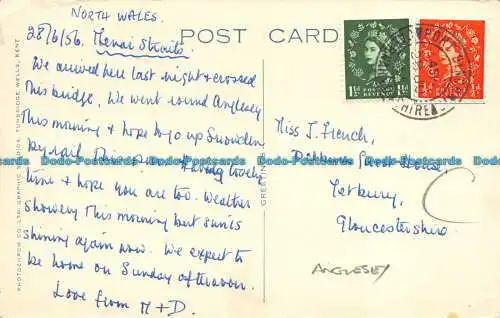 NORTH WALES.
28/6/56. Menai Straits.
We arrived here last night & crossed
this bridge. We went round Anglesey
this morning & hope to go up Snowdon
by rail this p.m. Having lovely
time & hope you are too. Weather
showery this morning but sun is
shining again now. We expect to
be home on Sunday afternoon.
Love from M + D.
POST CARD
Miss J. French,
Guest House,
Tetbury,
Gloucestershire
ANGLESEY
PHOTOCHROM CO. LTD. GRAPHIC STUDIOS, TUNBRIDGE WELLS, KENT
POSTAGE
REVENUE
1½d
½d
NEWPORT
Do-Postcards